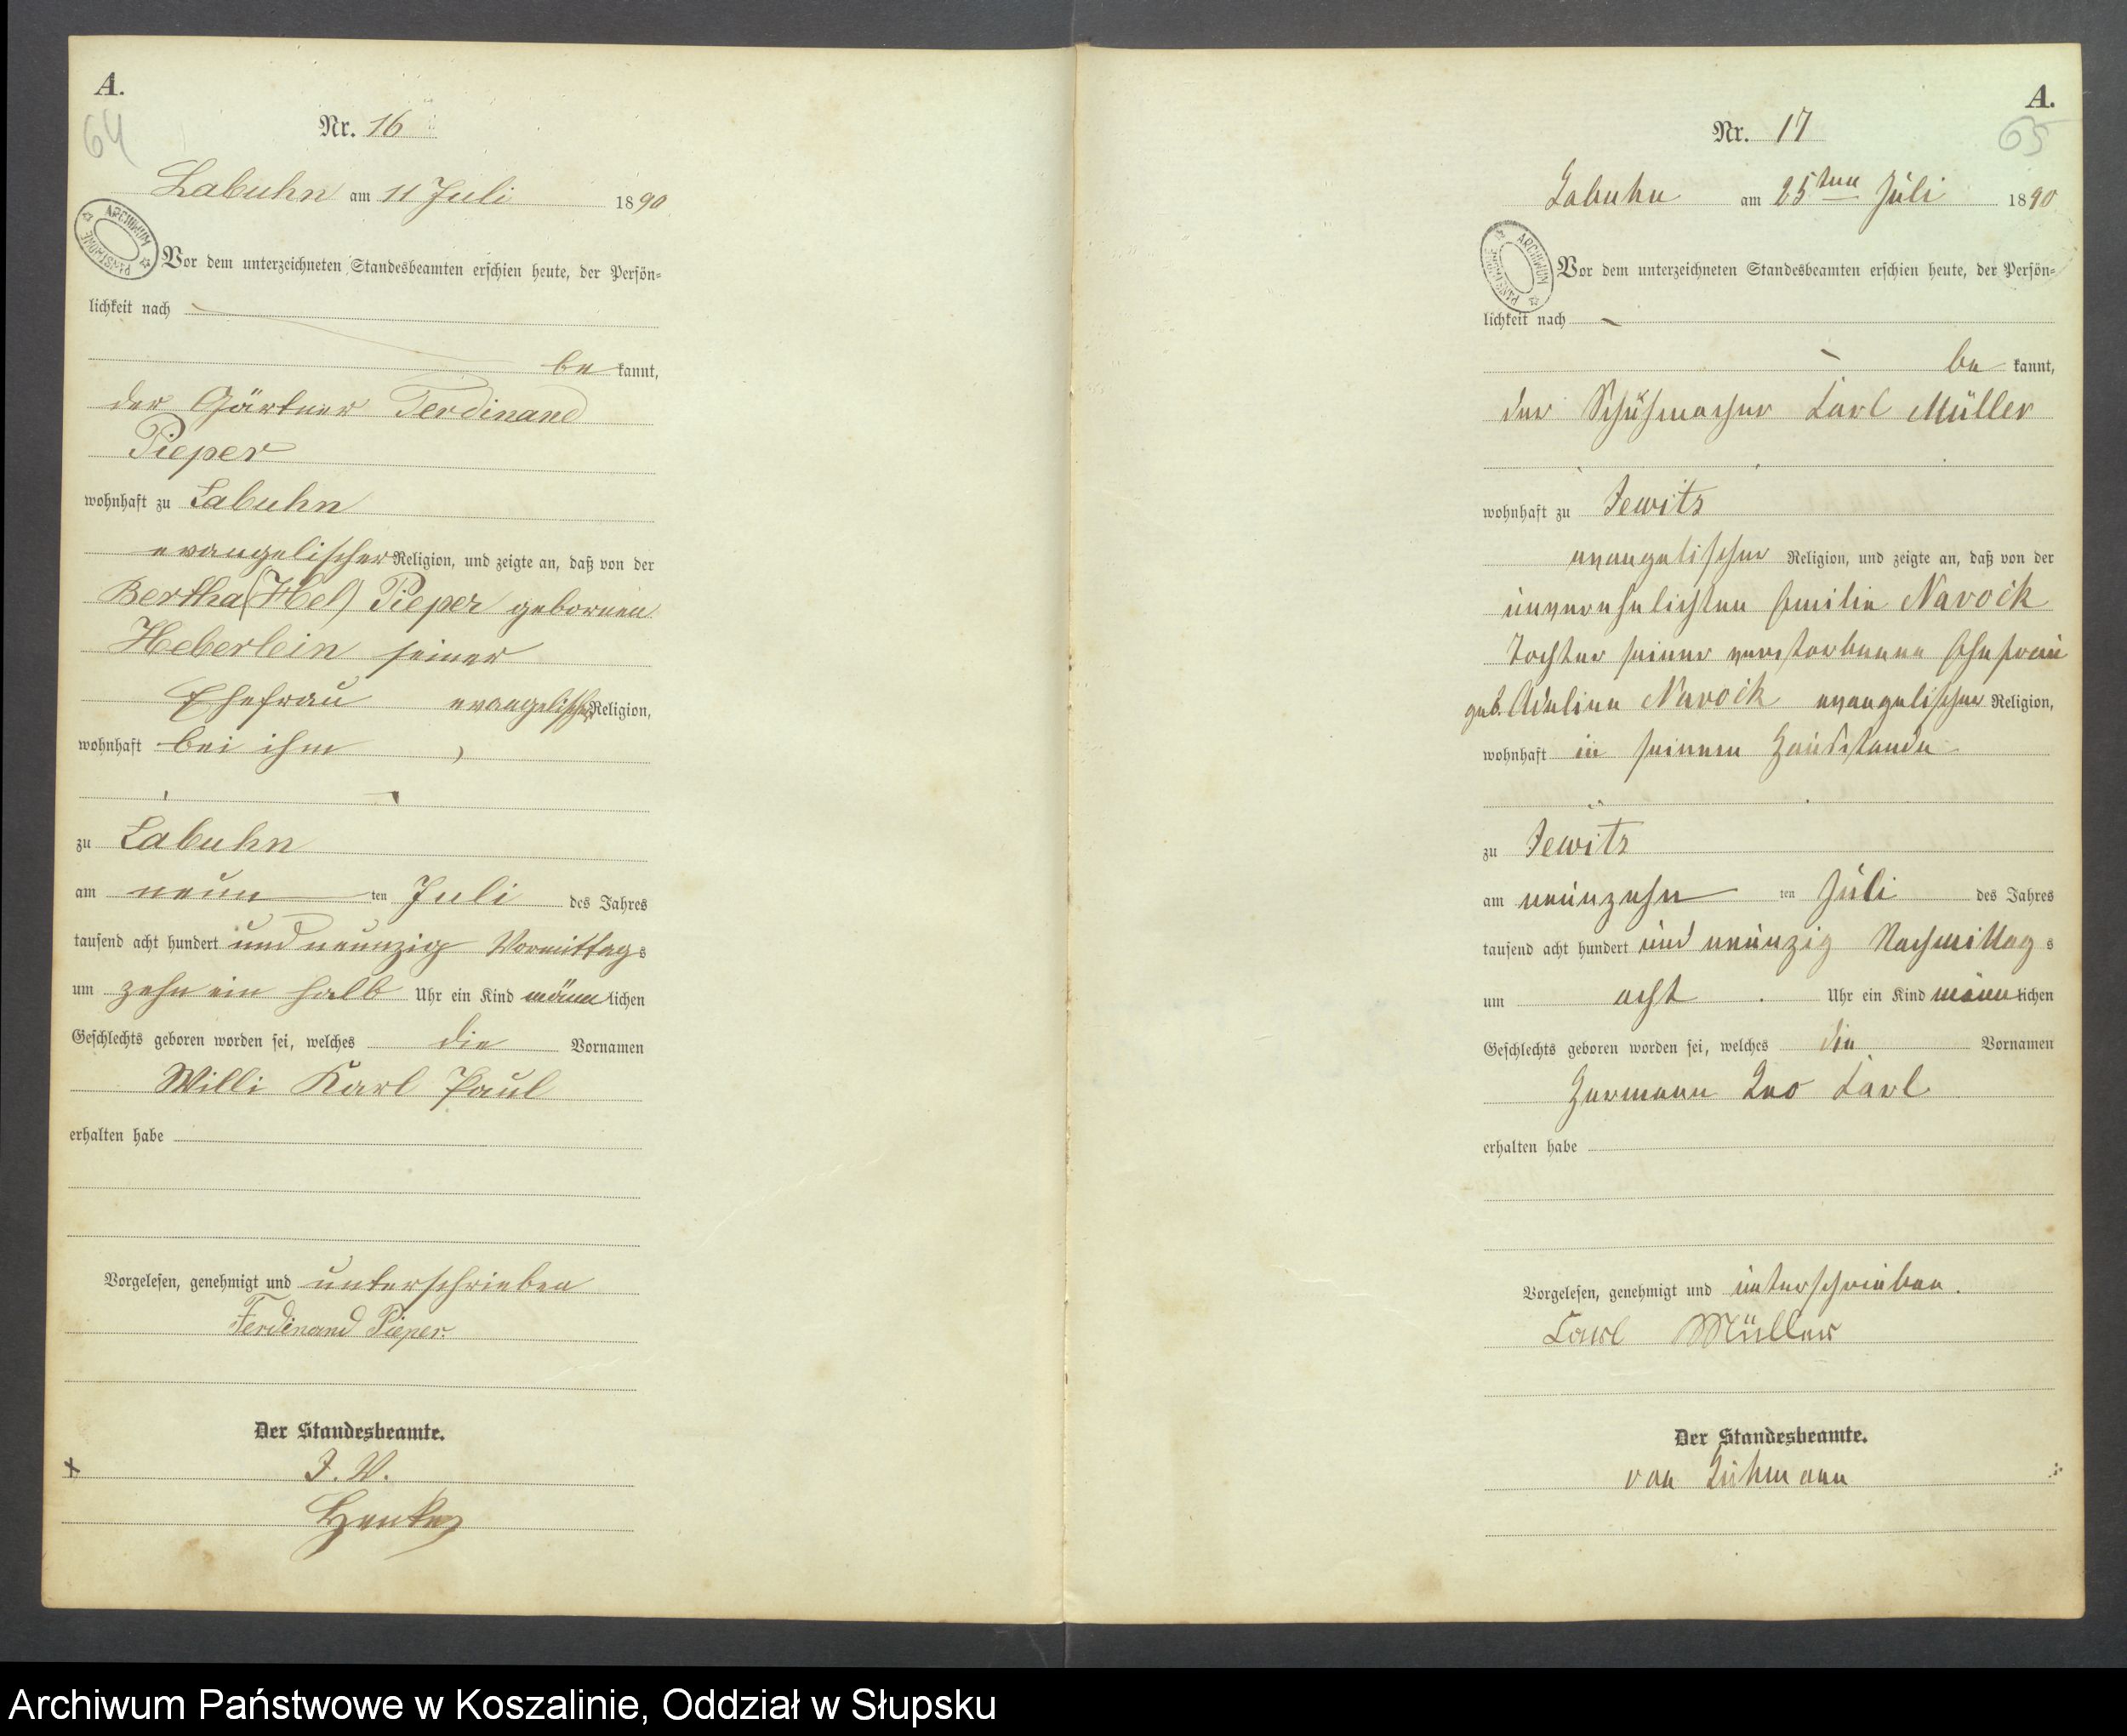 A.
64
Nr. 16
Labuhn am 11 Juli 1890
ARCHIWUM PAŃSTWOWE
Vor dem unterzeichneten Standesbeamten erschien heute, der Persön=
lichkeit nach
be kannt,
der Gärtner Ferdinand
Pieper
wohnhaft zu Labuhn
evangelischer Religion, und zeigte an, daß von der
Bertha (Hel) Pieper gebornen
Heberlein seiner
Ehefrau evangelischer Religion,
wohnhaft bei ihm
zu Labuhn
am neun ten Juli des Jahres
tausend acht hundert und neunzig Vormittag s
um zehn ein halb Uhr ein Kind männ lichen
Geschlechts geboren worden sei, welches die Vornamen
Willi Karl Paul
erhalten habe
Vorgelesen, genehmigt und unterschrieben
Ferdinand Pieper.
Der Standesbeamte.
J. V.
A.
65
Nr. 17
Labuhn am 25ten Juli 1890
ARCHIWUM PAŃSTWOWE
Vor dem unterzeichneten Standesbeamten erschien heute, der Persön=
lichkeit nach
be kannt,
der Schuhmacher Carl Müller
wohnhaft zu Jewitz
evangelischer Religion, und zeigte an, daß von der
unverehelichten Emilie Navock
Tochter seiner verstorbenen Ehefrau
geb. Adeline Navock evangelischer Religion,
wohnhaft in seinem Hausstande
zu Jewitz
am neunzehn ten Juli des Jahres
tausend acht hundert und neunzig Nachmittag s
um acht Uhr ein Kind männ lichen
Geschlechts geboren worden sei, welches die Vornamen
Hermann Leo Carl
erhalten habe
Vorgelesen, genehmigt und unterschrieben.
Carl Müller
Der Standesbeamte.
von
Archiwum Państwowe w Koszalinie, Oddział w Słupsku